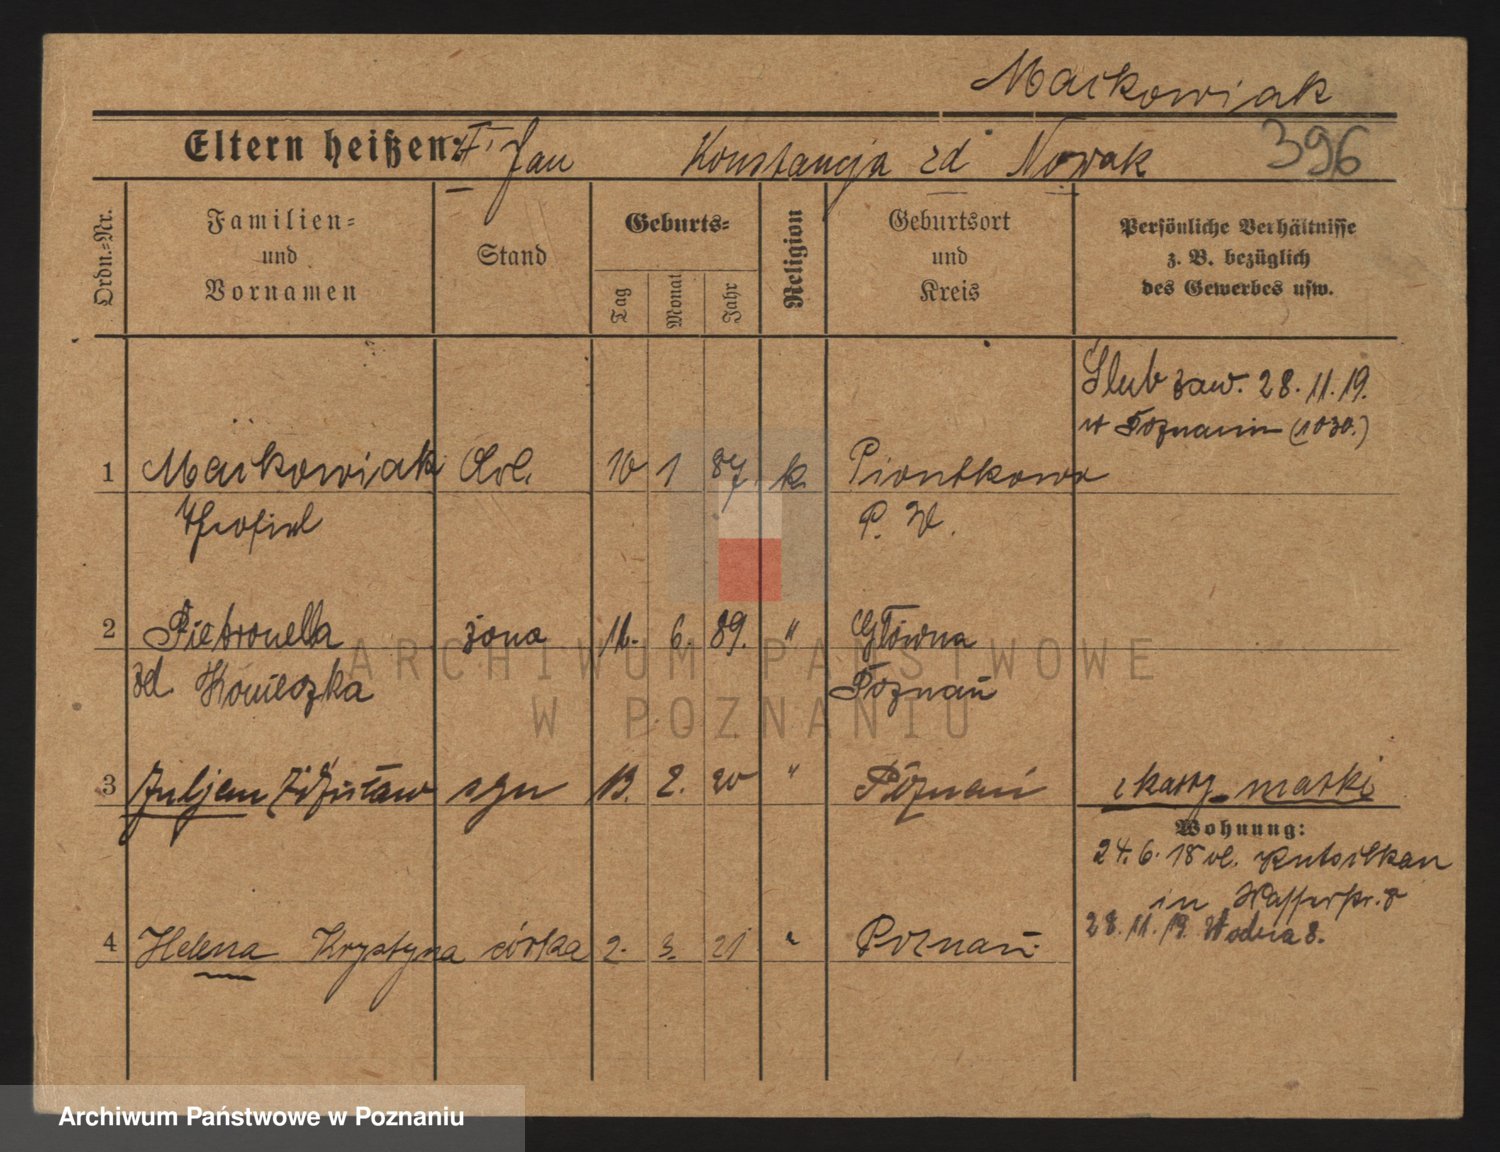 Maćkowiak
Eltern heißen: Jan Konstancja zd Nowak 396
Ordn.=Nr.
Familien=
und
Vornamen
Stand
Geburts=
Tag
Monat
Jahr
Religion
Geburtsort
und
Kreis
Persönliche Verhältnisse
z. B. bezüglich
des Gewerbes usw.
Ślub zaw. 28.11.19.
w Poznaniu (1030.)
1 Maćkowiak Arb. 10 1 87 k. Piontkowo
Theofiel P. W.
2 Pietronella żona 6. 89. " Główna
zd. Konieczka Poznań
3 Juljan Zdzisław syn 13. 2. 20 " Poznań
Wohnung:
24.6.18 vl.
in Wasserstr. 8
28.11.19. Wodna 8.
4 Helena Krystyna córka 2. 3. 21 " Poznań
ARCHIWUM PAŃSTWOWE
W POZNANIU
Archiwum Państwowe w Poznaniu